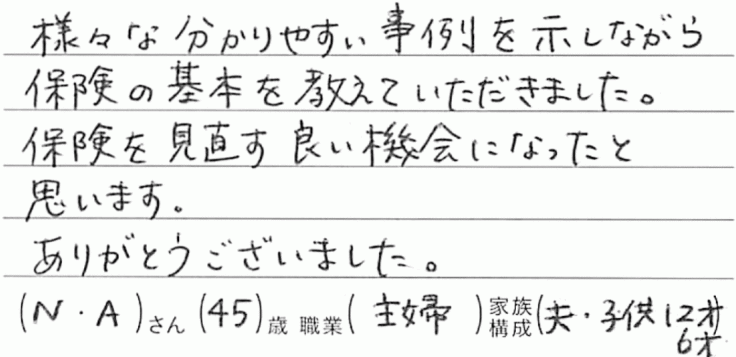 様々な分かりやすい事例を示しながら
保険の基本を教えていただきました。
保険を見直す良い機会になったと
思います。
ありがとうございました。
(N・A)さん (45)歳 職業(主婦)家族構成(夫・子供12才
6才